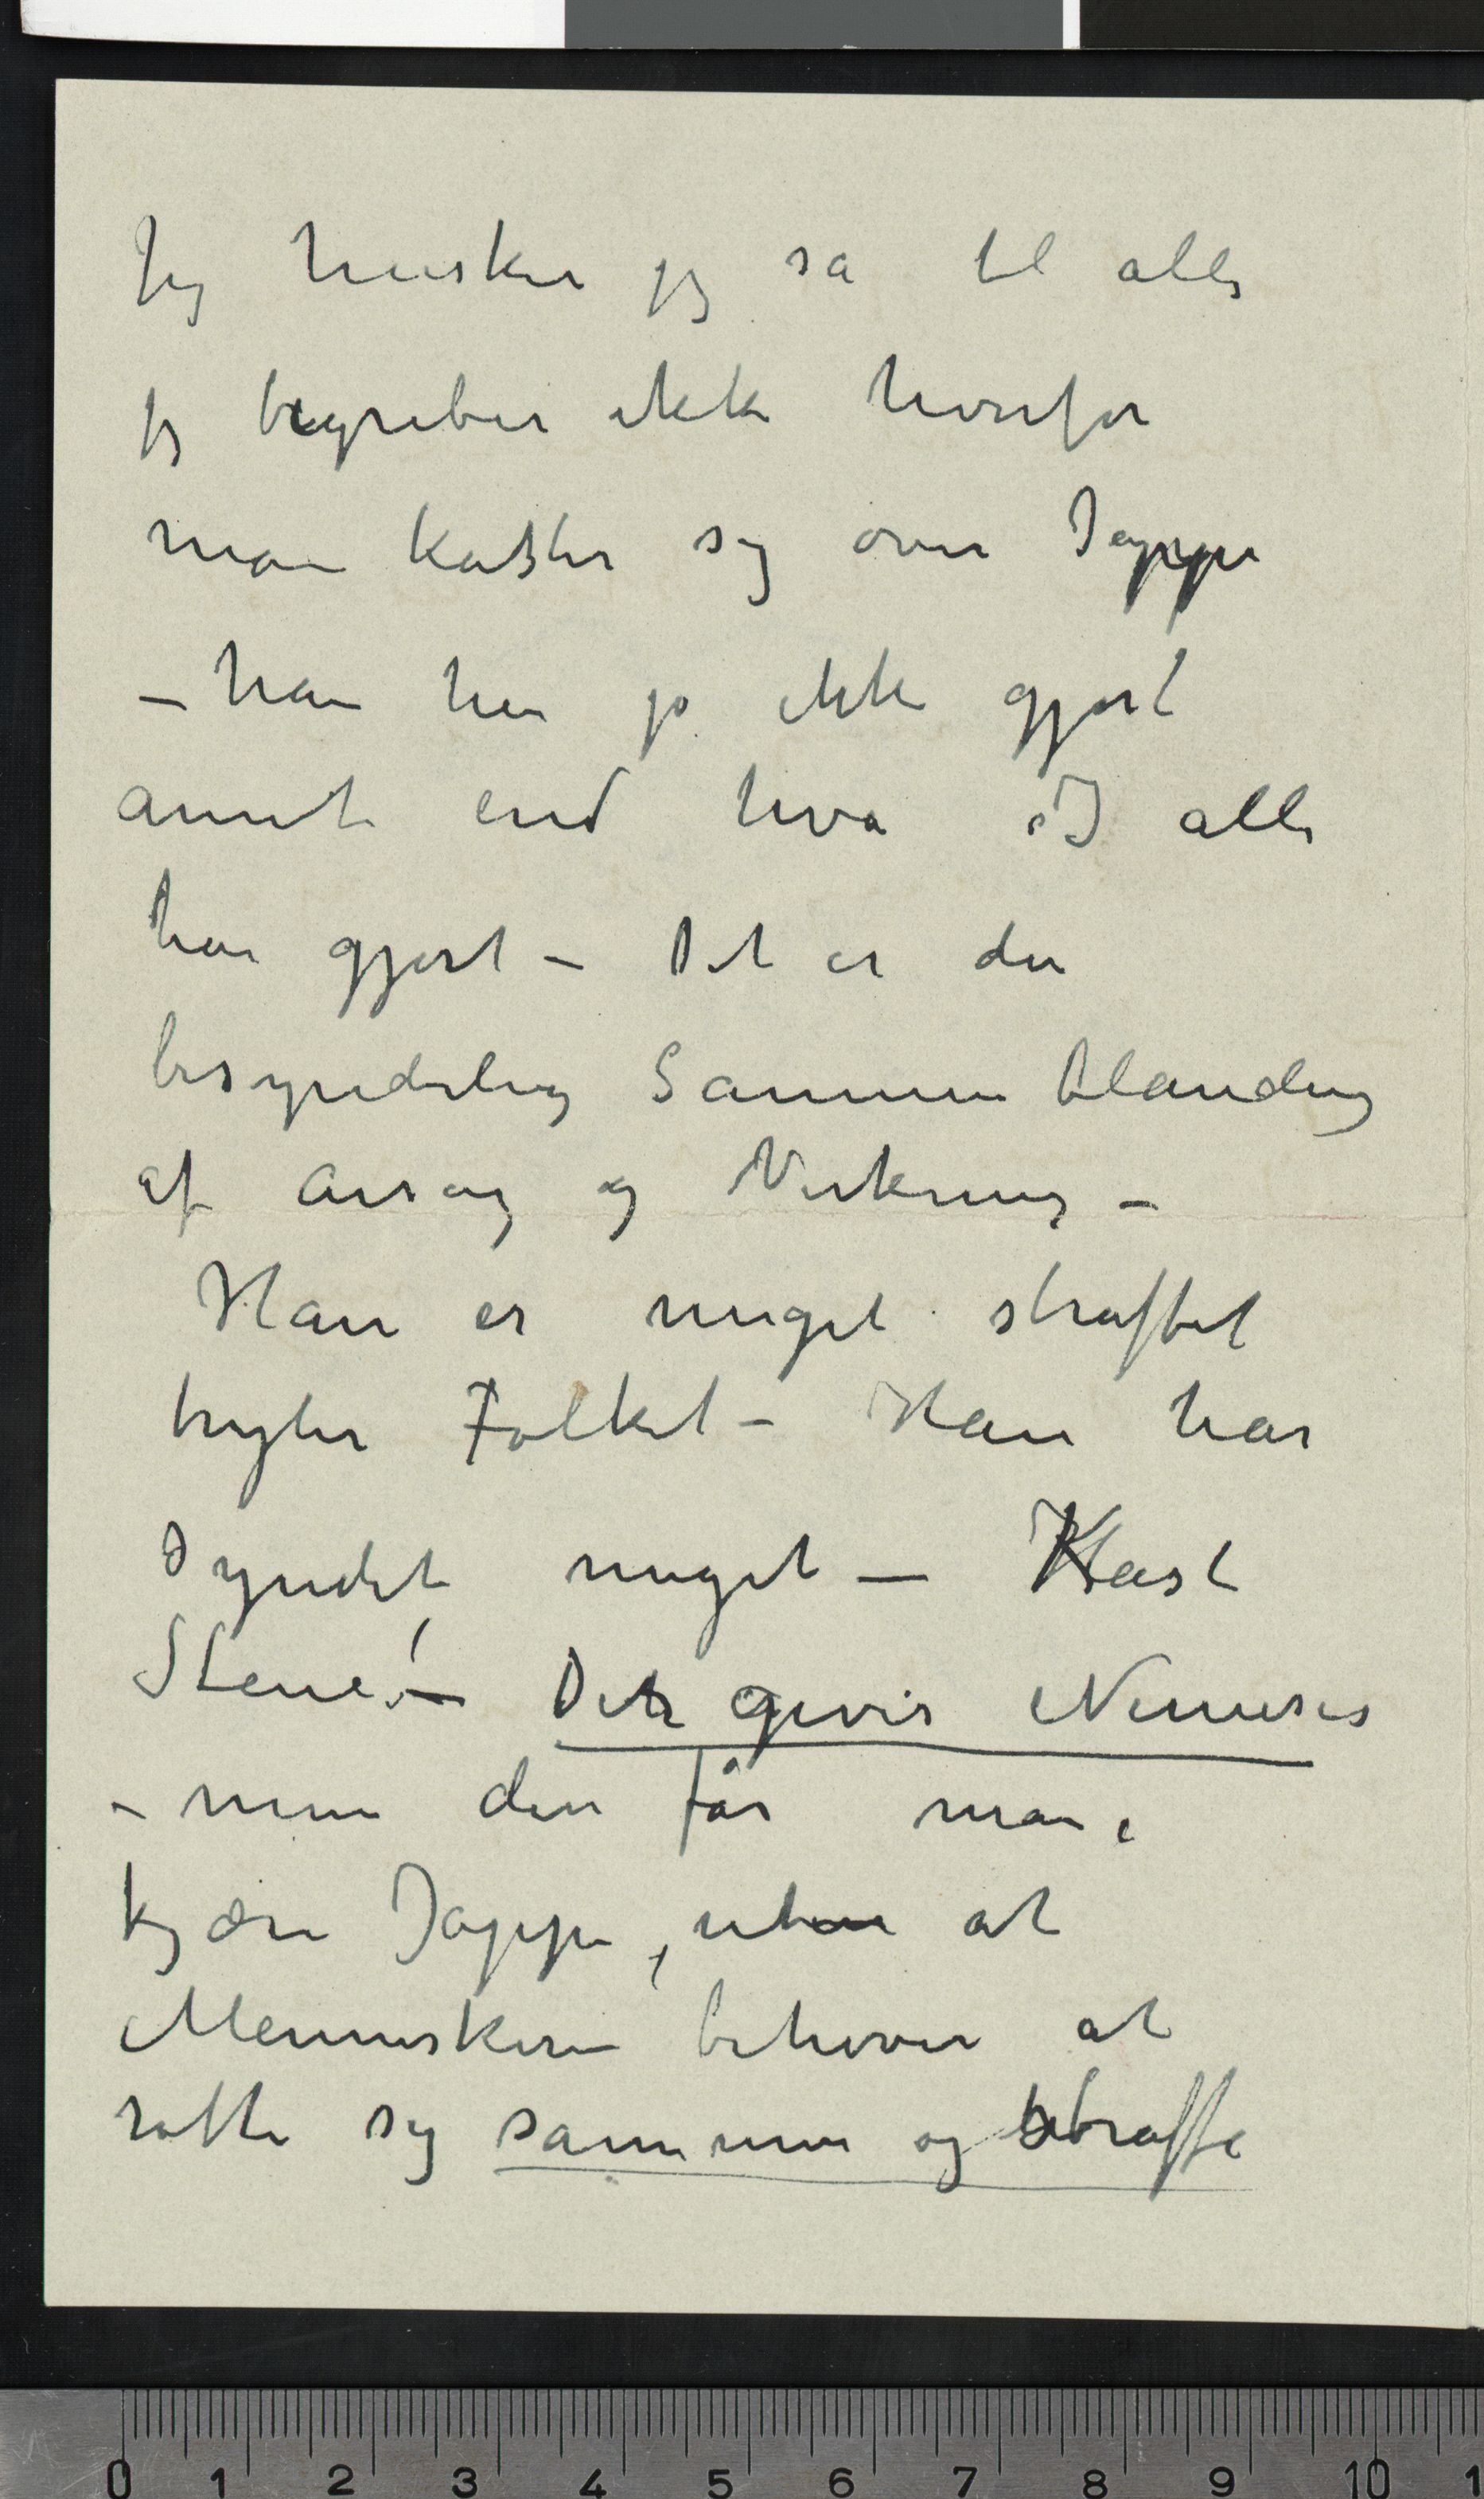 Jeg husker jeg sa til alle
jeg begriber ikke hvorfor
man kaster sig over Jappe
– han har jo ikke gjort
annet end hva I alle
har gjort – Det er den
besynderlig Sammenblanding
af Arsag og Virkning –
Han er meget straffet
tryter Folket – Han har
syndet meget – Kast
Stene! – Der gives Nemesis
– men den får man i
kjære Jappe, uten at
Menneskene behøver at
rotte sig sammen og straffe
0 1 2 3 4 5 6 7 8 9 10 1